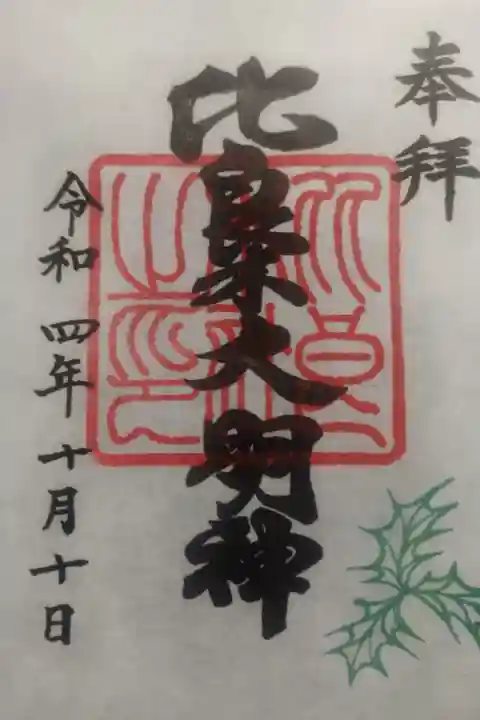 奉拝
比良木大明神
令和四年十月十日